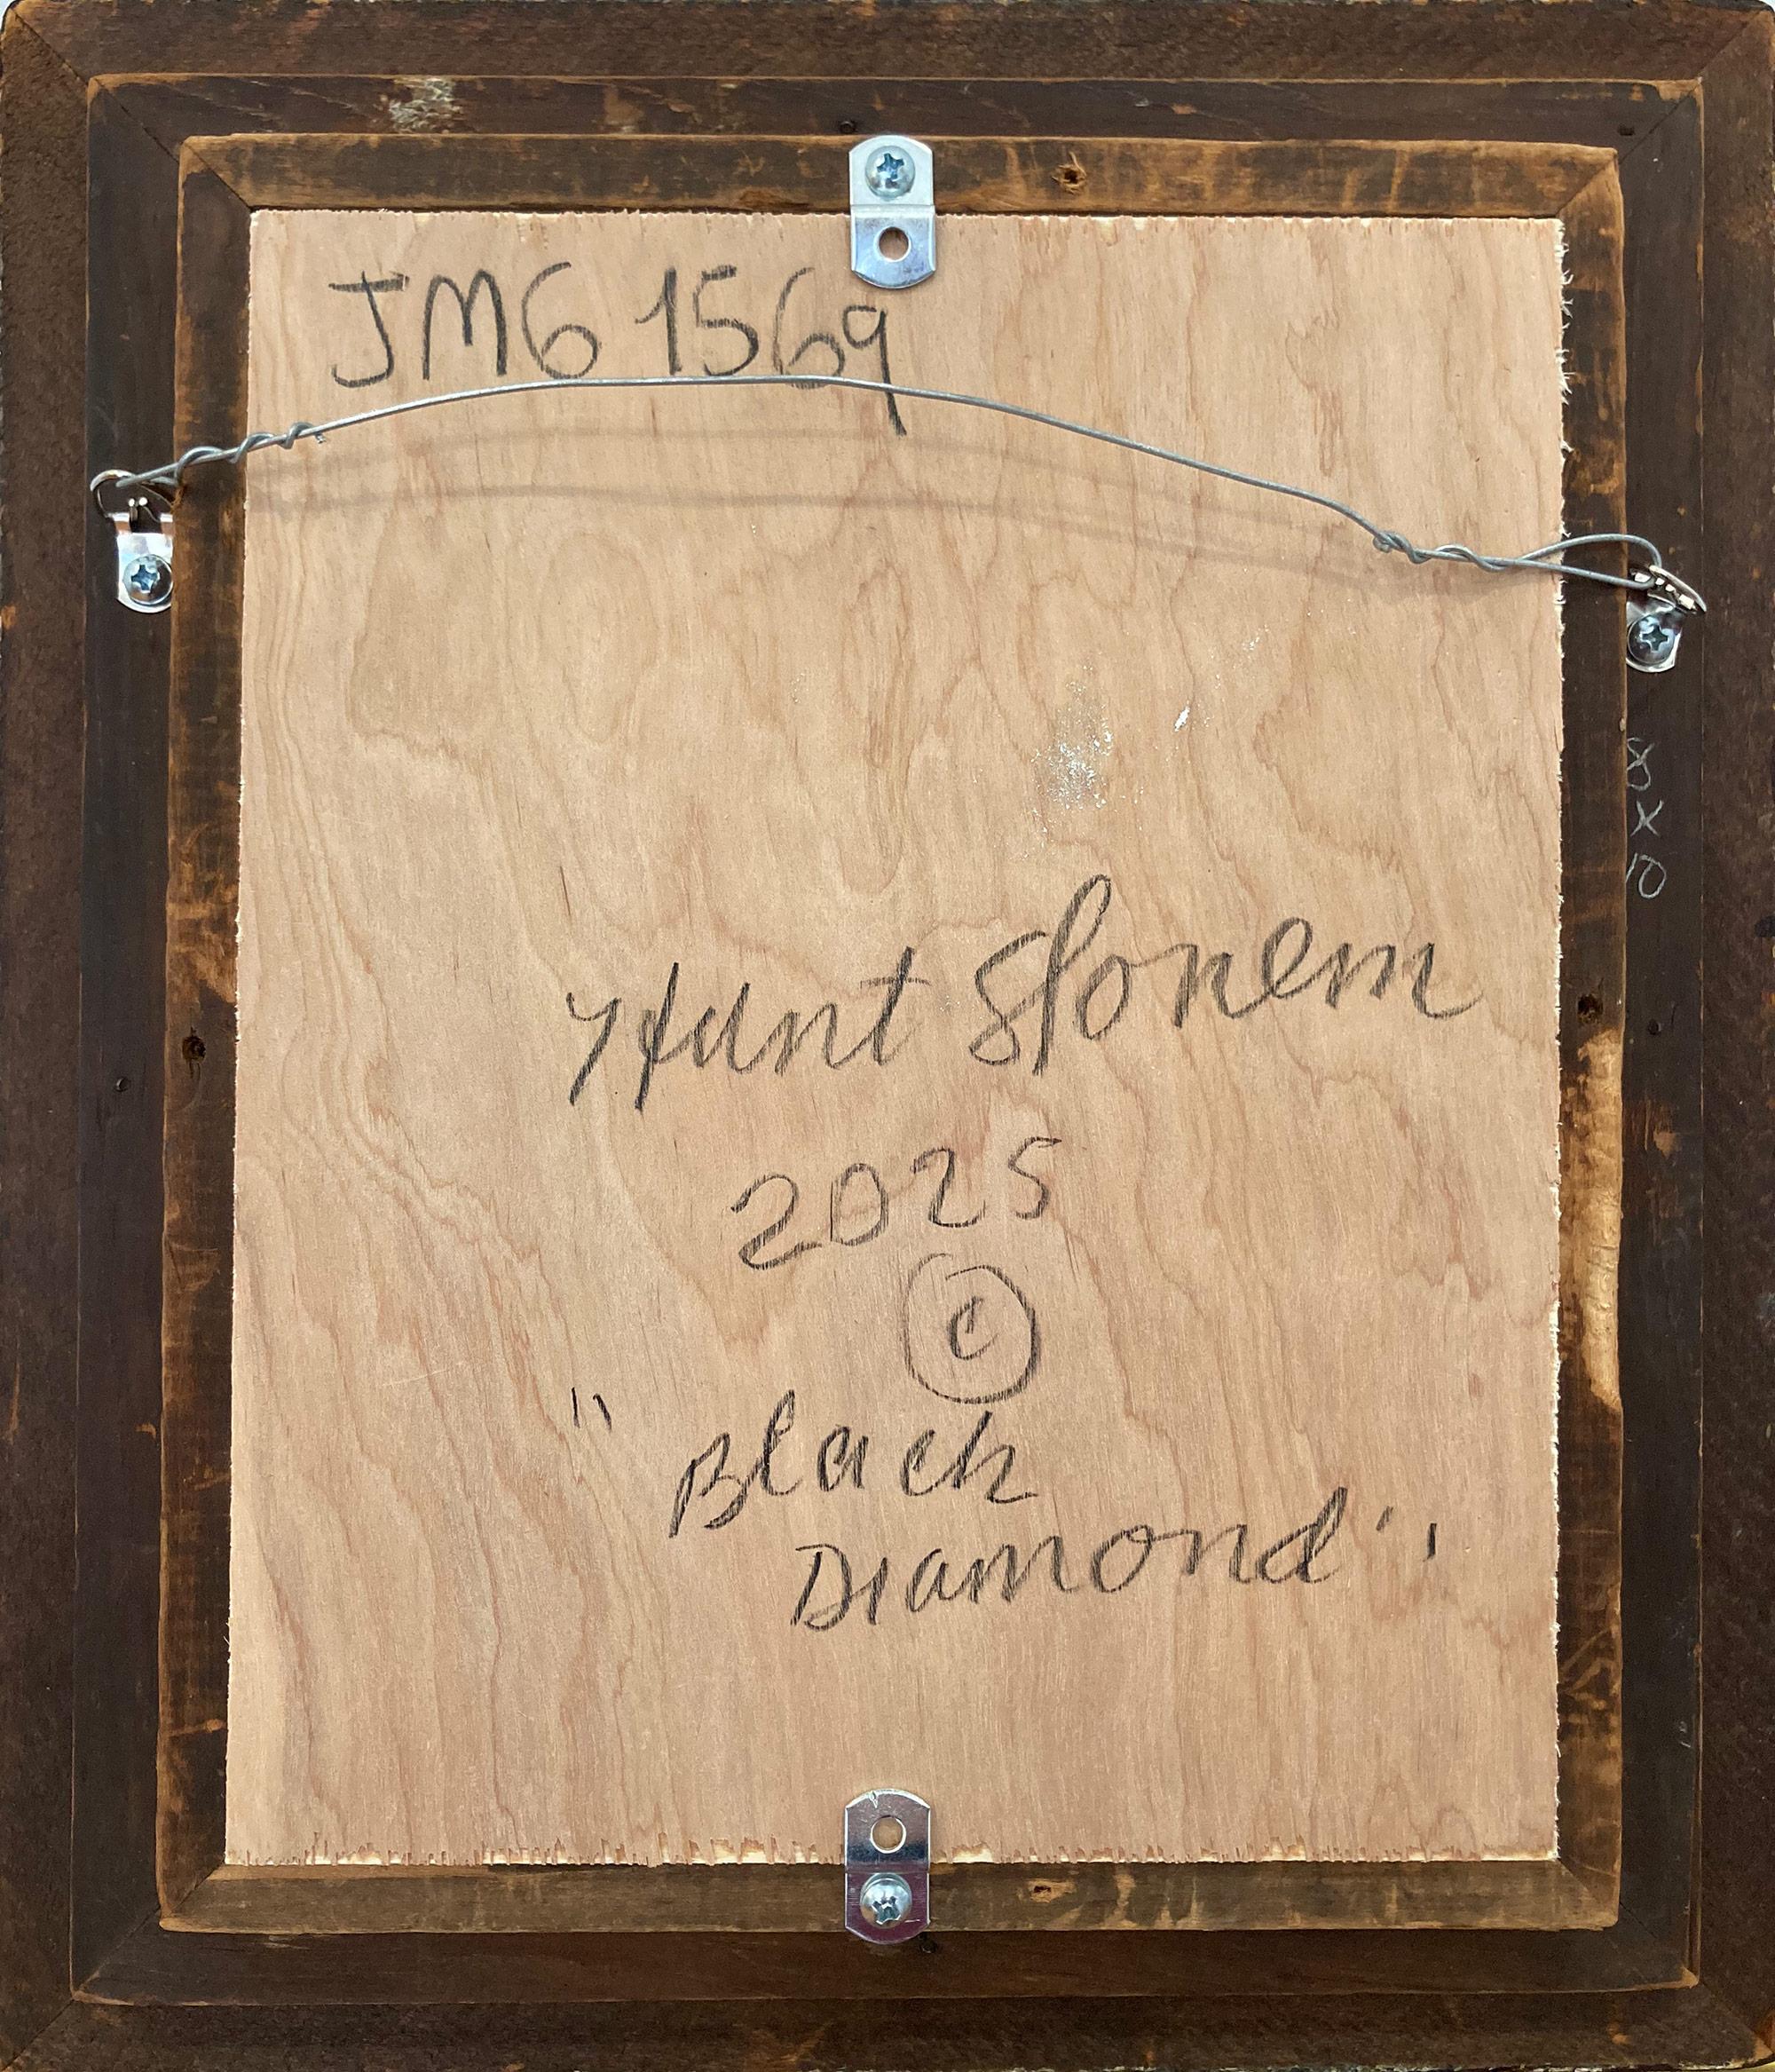 JMG 1569
8
X
10
Hunt Slonem
2025
©
"Black
Diamond"